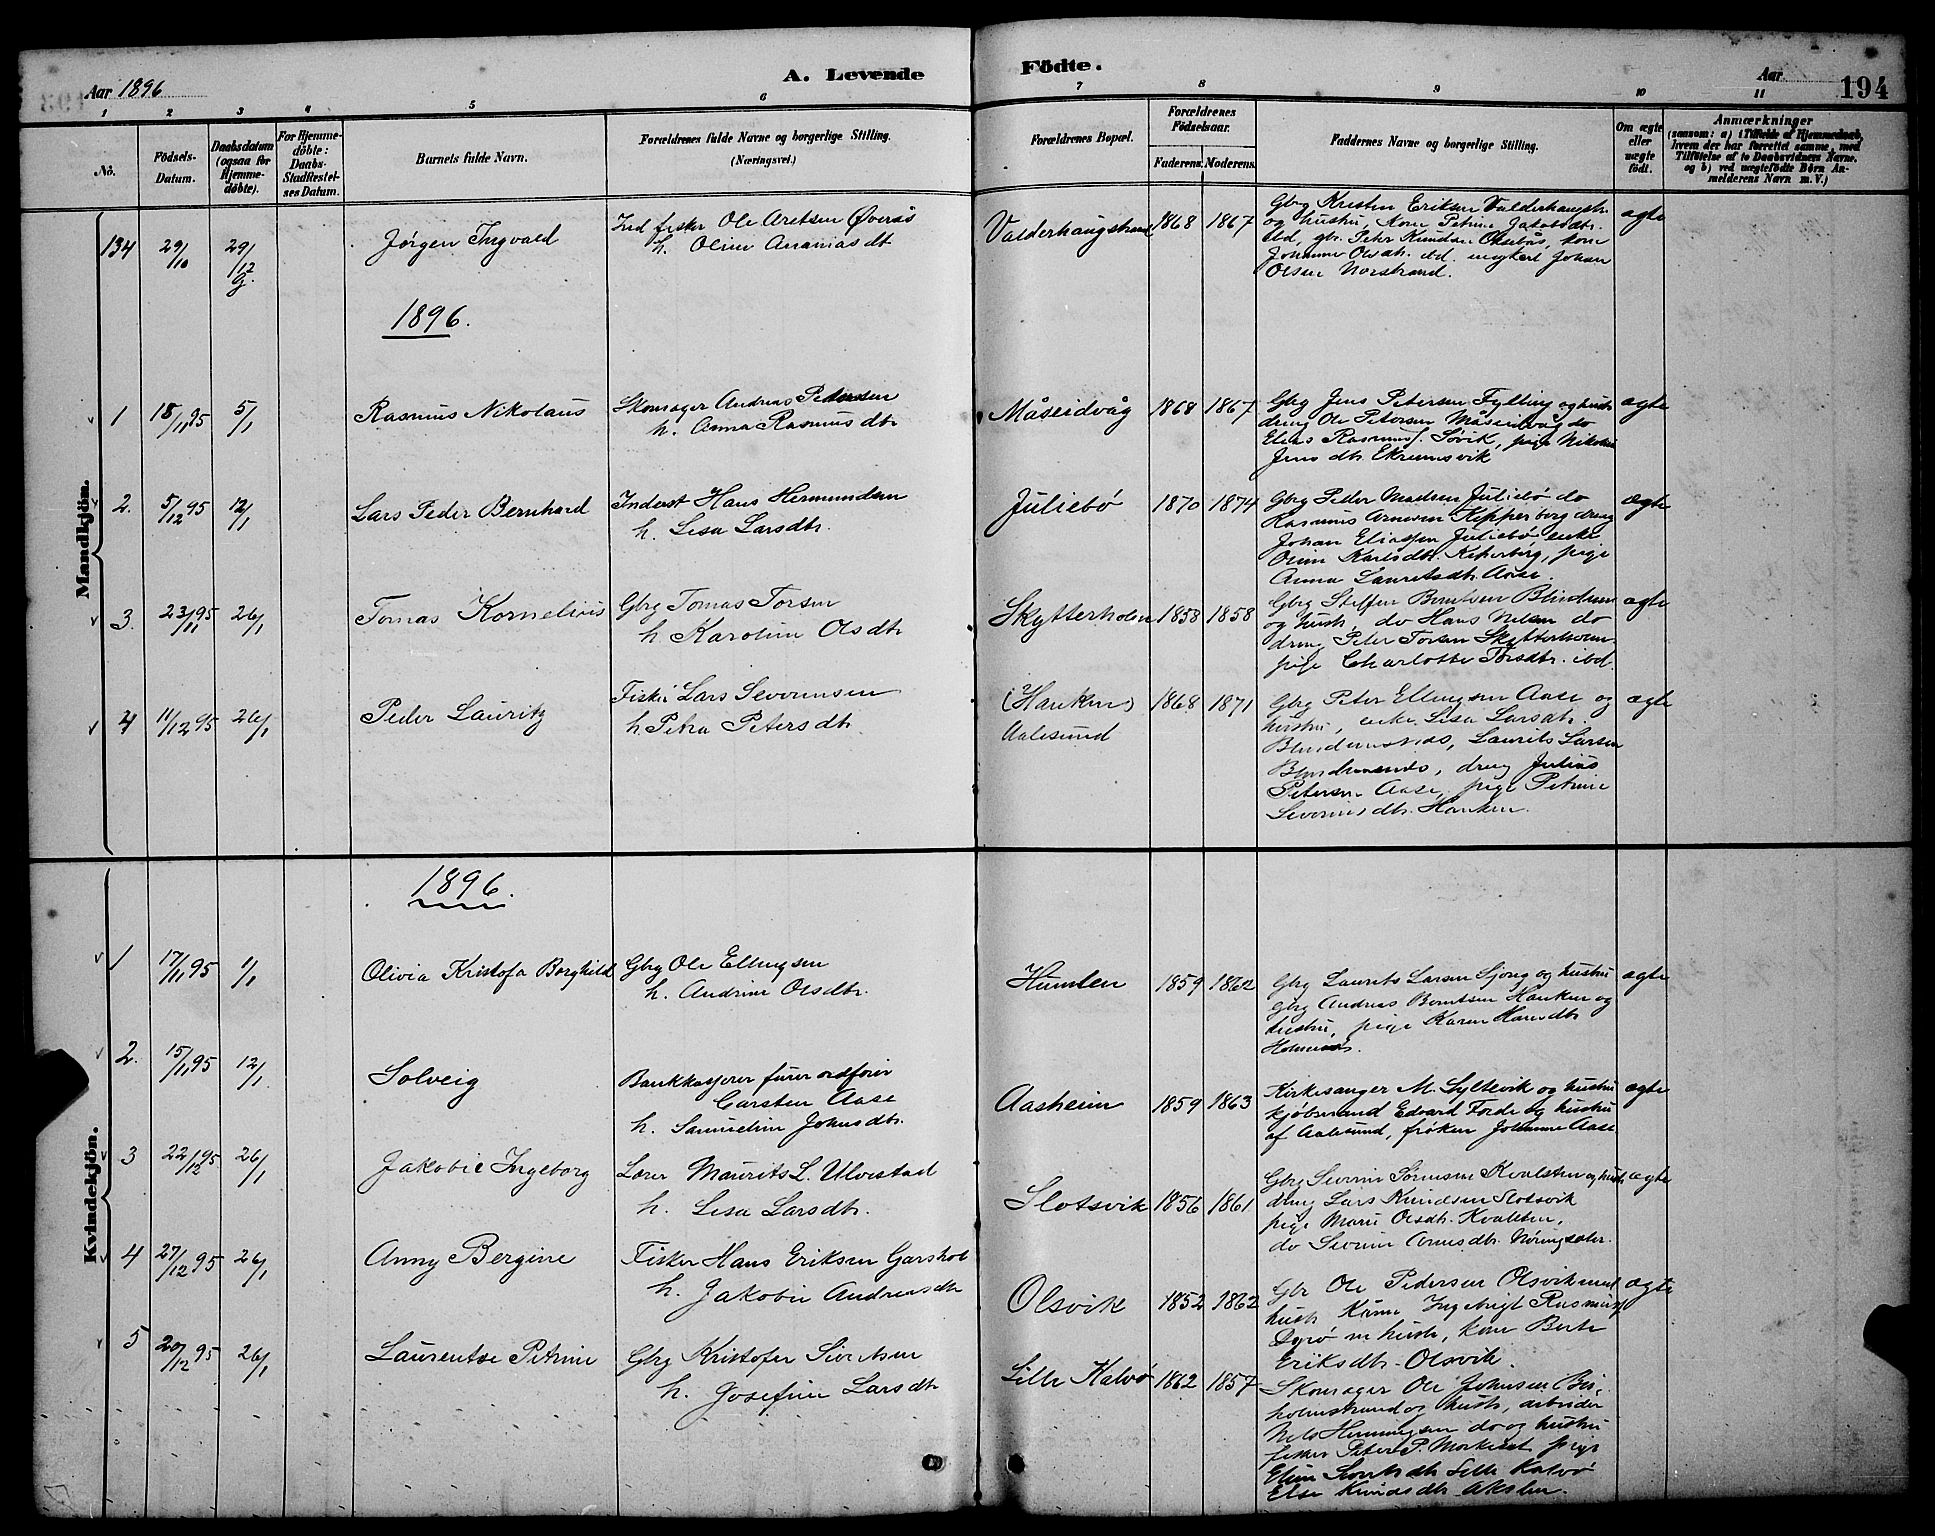 Aar 1896
A. Levende
Födte.
Aar
194
1 2 3 4 5 6 7 8 9 10 11
No.
Födsels-
Datum.
Daabsdatum
(ogsaa for
Hjemme-
döbte).
For Hjemme-
döbte:
Daabs-
Stadfestel-
ses Datum.
Barnets fulde Navn.
Forældrenes fulde Navne og borgerlige Stilling.
(Næringsvei.)
Forældrenes Bopæl.
Forældrenes
Födselsaar.
Faderens. Moderens.
Faddernes Navne og borgerlige Stilling.
Om ægte
eller
uægte
födt.
Anmærkninger
(saasom: a) i Tilfælde af Hjemmedaab,
hvem der har forrettet samme, med
Tilföielse af to Daabsvidners Navne,
og b) ved uægtefödte Börn An-
melderens Navn m. V.)
Mandkjön.
134 29/10 29/12 G. Jørgen Ingvald
Ind fisker Ole Aretsen Øverås
h. Oline Ananiasdt
Valderhaugstrand 1868 1867
Gbrg Kristen Eriksen Valderhaugstr.
og hustru, kone Petrine Jakobsdtr.
ibd, gbr. Peter Knudsen Olsebøs, kone
Johanne Olsdtr. ibd. ungkarl Johan
Olsen Norstrand.
ægte
1896.
1 18/11 95 5/1 Rasmus Nikolaus
Skomager Andreas Pedersen
h. Anna Rasmusdtr
Måseidvåg 1868 1867
Gbrg Jens Petersen Fylling og hustr
dreng Ole Petersen Måseidvåg do
Elias Rasmuss. Søvik, pige Nikoline
Jensdtr. Ekremsvik
ægte
2. 5/12 95 12/1 Lars Peder Bernhard
Inderst Hans Hermundsen
h. Lisa Larsdtr.
Juliebø 1870 1874
Gbrg Peder Madsen Juliebø do
Rasmus Arnesen Kipperberg dreng
Johan Eliassen Juliebø enke
Oline Karlsdtr. Kiperberg, pige
Anna Lauritsdtr. Aase.
ægte
3. 23/11 95 26/1 Tomas Kornelius
Gbrg Tomas Torsen
h. Karoline Olsdtr
Skytterholm 1858 1858
Gbrg Steffen Berntsen Blindem
og hustr, do Hans Nilsen do
dreng Peter Torsen Skytterholm
pige Charlotte Torsdtr. ibd.
ægte
4 11/12 95 26/1 Peder Lauritz
Fisker Lars Severinsen
h. Petra Petersdtr
(Hanken)
Aalesund
1868 1871
Gbrg Peter Ellingsen Aase og
hustru, enke Lisa Larsdtr.
Blindemsnes, Laurits Larsen
Blindemsnes, dreng Julius
Petersen Aase, pige Petrine
Severinsdtr. Hanken.
ægte
Kvindekjön.
1896.
1 17/11 95 1/1 Olivia Kristofa Borghild
Gbrg Ole Ellingsen
h. Andrine Olsdtr.
Humlen 1859 1862
Gbrg Laurits Larsen Sjong og hustru
Gbrg Andreas Berntsen Hanken og
hustru, pige Karen Hansdtr
ægte
2. 15/11 95 12/1 Solveig
Bankkasserer forver ordfører
Carsten Aase
h. Samueline Johnsdtr.
Aasheim 1859 1863
Kirkesanger M. Syltevik og hustru
kjøbmand Edvard Forde og hustru
af Aalesund, frøken Johanne Aase
ægte
3 22/12 95 26/1 Jakobie Ingeborg
Lærer Maurits L. Ulvestad
h. Lisa Larsdtr.
Slotsvik 1856 1861
Gbrg Severin Sørensen Kvalsten og hustr
dreng Lars Knudsen Slotsvik
pige Marie Olsdtr. Kvalsten,
do Severine Arnesdtr. Nøringseter.
ægte
4 27/12 95 26/1 Anny Bergine
Fisker Hans Eriksen Garshol
h. Jakobie Andreasdtr
Olsvik 1852 1862
Gbr Ole Pedersen Olsvik med
hustr. Kårne Ingebrigt Rasmuss
Dyrø m hustr, kone Berte
Eriksdtr. Olsvik.
ægte
5 20/12 95 26/1 Laurentse Petrine
Gbrg Kristofer Sivertsen
h. Josefine Larsdtr
Lille Kalvø 1862 1857
Skomager Ole Johnsen Bis-
holmstrand og hustr, arbeider
Nils Hemmingsen do og hustru
fisker Peter P. Morkeset pige
Eline Sivertsdtr Lille Kalvø
Else Knudsdtr. Akslen.